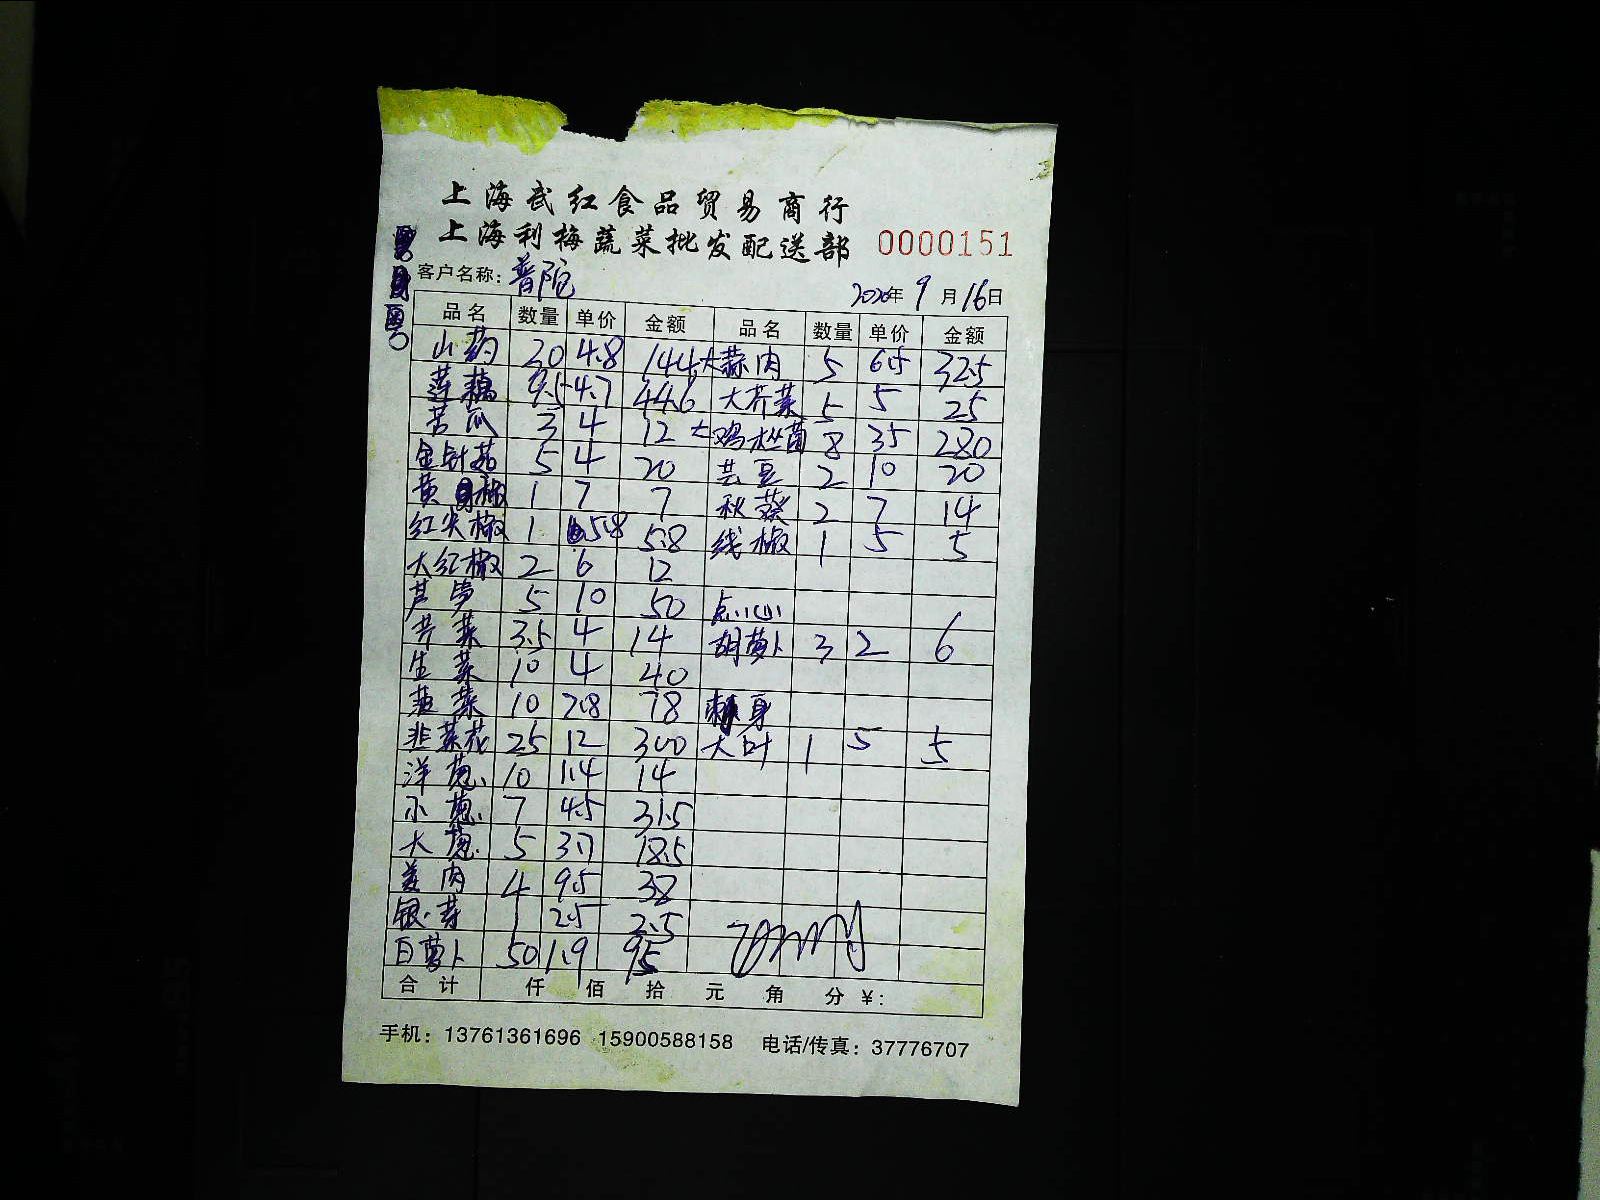 上海武红食品贸易商行
上海利梅蔬菜批发配送部 0000151
客户名称：普陀 2020年 9 月 16 日
品名 数量 单价 金额 品名 数量 单价 金额
山药 30 4.8 144 大蒜肉 5 6.5 32.5
莲藕 9.5 4.7 44.6 大芥菜 5 5 25
苦瓜 3 4 12 大鸡枞菌 8 35 280
金针菇 5 4 20 芸豆 2 10 20
黄 椒 1 7 7 秋葵 2 7 14
红尖椒 1 5.8 5.8 线椒 1 5 5
大红椒 2 6 12
芦笋 5 10 50 点心
芹菜 3.5 4 14 胡萝卜 3 2 6
生菜 10 4 40
菠菜 10 7.8 78 刺身
韭菜花 25 12 300 大叶 1 5 5
洋葱 10 1.4 14
小葱 7 4.5 31.5
大葱 5 3.7 18.5
姜肉 4 9.5 38
银芽 1 2.5 2.5
白萝卜 50 1.9 95
合计 仟 佰 拾 元 角 分 ¥：
手机：13761361696 15900588158 电话/传真：37776707